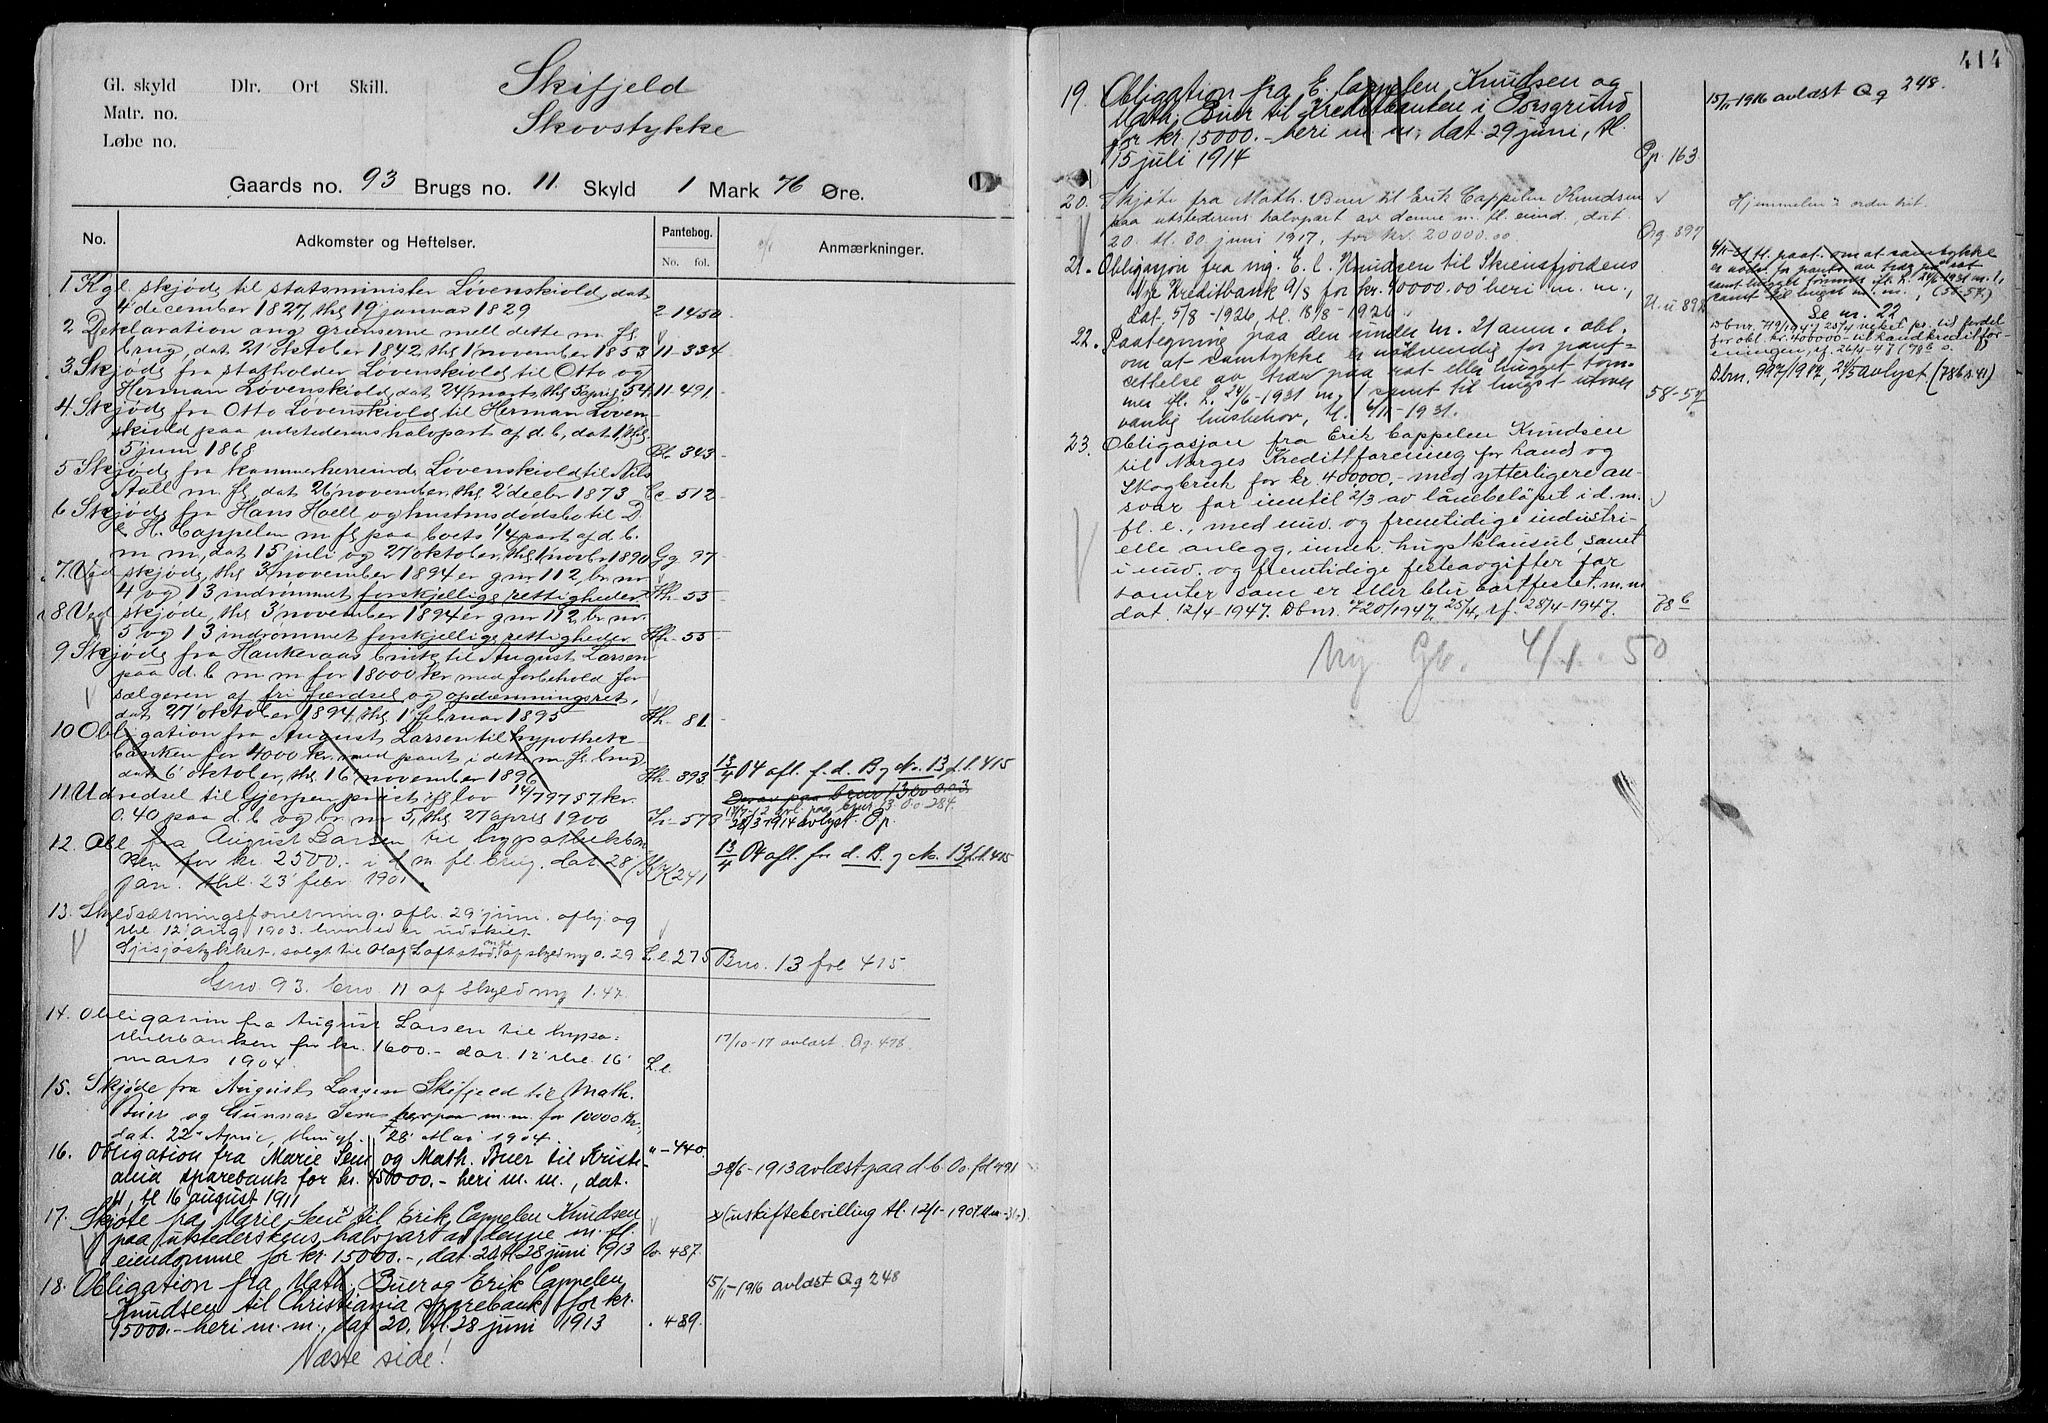 Gl. skyld Dlr. Ort Skill.
Matr. no.
Løbe no.
Skifjeld
Skovstykke
Gaards no. 93 Brugs no. 11. Skyld 1 Mark 76 Øre.
No. Adkomster og Heftelser. Pantebog. No. fol. Anmærkninger.
1 Kgl. skjøde til statsminister Løvenskiold, dat
4' december 1827, thg 19 januar 1829 2 1450
2 Deklaration ang grænserne mell dette m fl
brug, dat 21' oktober 1842, thg 1' november 1853 11-334
3 Skjøde fra statholder Løvenskiold til Otto og
Herman Løvenskiold, dat 24' marts, thg 5 april 54 11-491
4. Skjøde fra Otto Løvenskiold til Herman Løven-
skiold paa udstederens halvpart af d. b, dat 1, thg
5 juni 1868 Bb 343
5 Skjøde fra kammerherreind. Løvenskiold til Nils
Aall m fl, dat 26' november, thg 2' decbr 1873 Cc - 512
6 Skjøde fra Hans Hoell og hustrus dødsbo til D
H. Cappelen m fl paa boets 1/4 part af d. b.
m m, dat 15 juli og 27 oktober, thg 1' novbr 1890 Gg 97
7. Ved skjøde, thg 3' november 1894 er gnr 112, br. nr
4 og 13 indrømmet forskjellige rettigheder Hh- 55
8 Ved skjøde, thg 3' november 1894 er gnr 112, br. nr.
5 og 13 indrømmet forskjellige rettigheder Hh- 55
9 Skjøde fra Hankevaas bruk til August Larsen
paa d. b m m for 18000 kr med forbehold for
sælgeren af fri færdsel og opdæmningsret,
dat 27' oktober 1894, thg 1' februar 1895 Hh- 81.
10 Obligation fra August Larsen til hypothek-
banken for 4000 kr. med pant i dette m fl brug
dat 6' oktober, thg 16' november 1896 Hh- 393 13/4 04 afl. f. d. B og No. 13 fol. 415
11 Udredsel til Gjerpen præst ifg lov 14/7 97 57 kr.
0.40 paa d. b og br nr 5, thg 27' april 1900 - 578 28/3 1914 avlyst. Op.
12. Obl fra August Larsen til hypothekban
ken for kr. 2500.- i d m fl. brug. dat. 28'
jan. thl. 23' febr. 1901. KK 241 13/4 04 afl. for d. B. og No. 13 fol. 415
13. Skyldsætningsforretning. afh. 29' juni. afhj. og
thl 12' aug 1903. hvorved er udskilt
solgt til Olaf af skyld my 0.29 L.l. 275 Bno. 13 fol 415
Gno 93. bno. 11 af skyld my 1.47.
14. Obligation fra August Larsen til hypo-
thekbanken for kr. 1600.- dat. 12' thl. 16'
marts 1904. L.l. 17/10-17 avlæst. Qq. 478.
15. Skjøde fra August Larsen Skifjeld til Math.
Buer og Gunnar Sem herpaa m. m. for 10000 kr.
dat. 22' April, thingl. 28' Mai 1904. "-440.
16. Obligation fra Marie Sem og Math. Buer til Kristi-
ania sparebank for kr. 45000.- heri m. m., dat.
tl 16 august 1911 28/6-1913 avlæst paa d. b. Oo. fol 491
17. Skjøte fra Marie Sem x) til Erik Cappelen Knudsen
paa utstederskens halvpart av denne m. fl.
eiendomme for kr. 15000.-, dat. 20 tl 28 juni 1913 Oo. 487. x) (uskiftebevilling tl. 12/1-1907
18. Obligation fra Math. Buer og Erik Cappelen
Knudsen til Christiania sparebank for kr.
15000.- heri m. m., dat 20. tl. 28 juni 1913 . 489. 15/11-1916 avlæst Qq 248
Næste side!
414
19. Obligation fra E. Cappelen Knudsen og
Math. Buer til Kreditbanken i Porsgrund
for kr. 15000.- heri m. m., dat. 29 juni, tl.
15 juli 1914 Op. 163. 15/11-1916 avlæst Qq 248.
20. Skjøte fra Math. Buer til Erik Cappelen Knudsen
paa utstederens halvpart av denne m. fl. eiend., dat.
20. tl. 30. juni 1917, for kr. 20000.00 Qq. 397 Hjemmelen i orden
21. Obligasjon fra ing. E. C. Knudsen til Skiensfjordens
Nye Kreditbank A/S for kr. 40000.00 heri m. m.,
dat. 5/8-1926, tl. 18/8-1926. U. u 898
22. Paategning paa den under nr. 21 anm. obl.
om at samtykke er nødvendig for pant-
sættelse av trær paa rot eller hugget tøm-
mer ifl. L. 24/6-1931 m. samt til hugst utover
vanlig husbehov, tl. 6/11-1931. 58-57
6/11-31 tl. paat. om at samtykke
Se nr. 22
Dbnr. 719/1947 25/4 veket pr. til fordel
for obl. kr. 400000- til Landkreditfor-
eningen, rf. 26/4-47 (78b s.
Dbnr. 997/1947, 24/5 avlyst (78b s. 41)
23. Obligasjon fra Erik Cappelen Knudsen
til Norges Kredittforening for Land og
Skogbruk for kr. 400000.- med ytterligere an-
svar for inntil 2/3 av lånebeløpet i d. m.
fl. e., med nuv. og fremtidige industri-
elle anlegg, inneh. hugstklausul, samt
i nuv. og fremtidige festeavgifter for
tomter som er eller blir bortfestet m. m.
dat. 12/4-1947. Dbnr. 720/1947, 25/4, rf. 28/4-1947. 78b
Ny Gb. 4/1-50